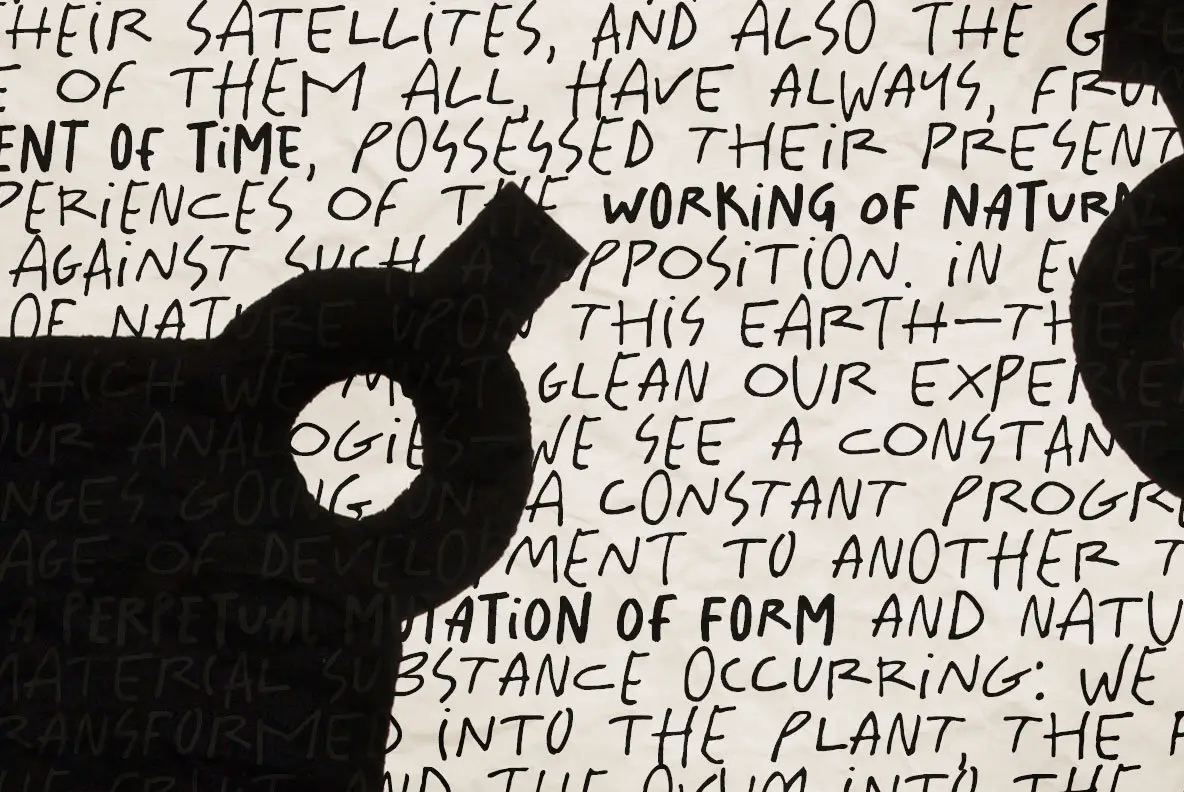 THEIR SATELLITES, AND ALSO THE
OF THEM ALL, HAVE ALWAYS, FROM
ENT OF TIME, POSSESSED THEIR PRESENT
PERIENCES OF THE WORKING OF NATURE
AGAINST SUCH A SUPPOSITION. IN EVERY
OF NATURE UPON THIS EARTH—THE
WHICH WE MUST GLEAN OUR EXPERIE
OUR ANALOGIES—WE SEE A CONSTANT
NGES GOING ON A CONSTANT PROGRE
AGE OF DEVELOPMENT TO ANOTHER
A PERPETUAL MUTATION OF FORM AND NATU
MATERIAL SUBSTANCE OCCURRING: WE
TRANSFORMED INTO THE PLANT, THE
THE FRUIT AND THE OVUM INTO THE